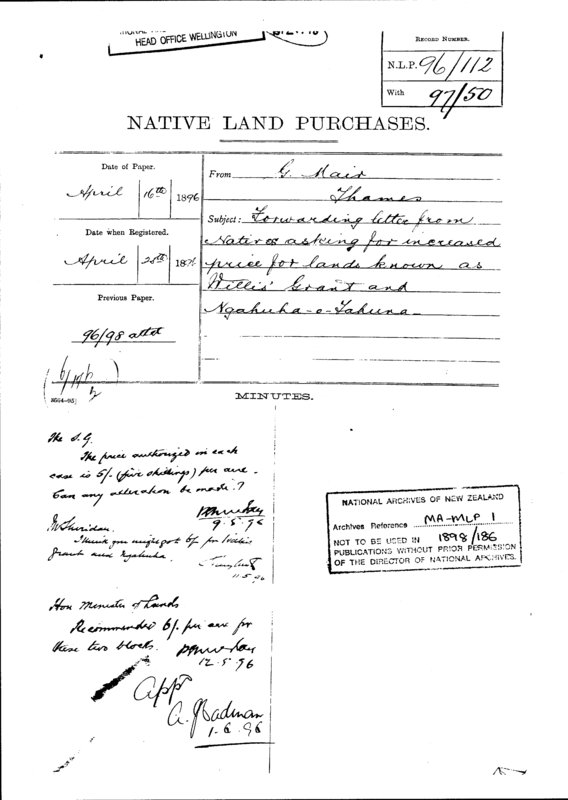 HEAD OFFICE WELLINGTON
RECORD NUMBER.
N.L.P. 96/112
With 97/50
NATIVE LAND PURCHASES.
Date of Paper.
April 16th 1896
Date when Registered.
April 28th 1896
Previous Paper.
96/98 attd
From G. Mair
Thames
Subject: Forwarding letter from
Natives asking for increased
price for lands known as
Willis' Grant and
Ngahuha-o-Tahuna
MINUTES.
The S.G.
The price authorized in each
case is 5/- (five shillings) per acre.
Can any alteration be made?
9.5.96
Mr Sheridan.
I think you might got 6/- for Willis's
grant and Ngahuha.
11.5.96
Hon Minister of Lands
Recommended 6/- per acre for
these two blocks.
12.5.96
App
A. J. Cadman
1.6.96
NATIONAL ARCHIVES OF NEW ZEALAND
Archives Reference MA-MLP 1
NOT TO BE USED IN 1898/186
PUBLICATIONS WITHOUT PRIOR PERMISSION
OF THE DIRECTOR OF NATIONAL ARCHIVES.